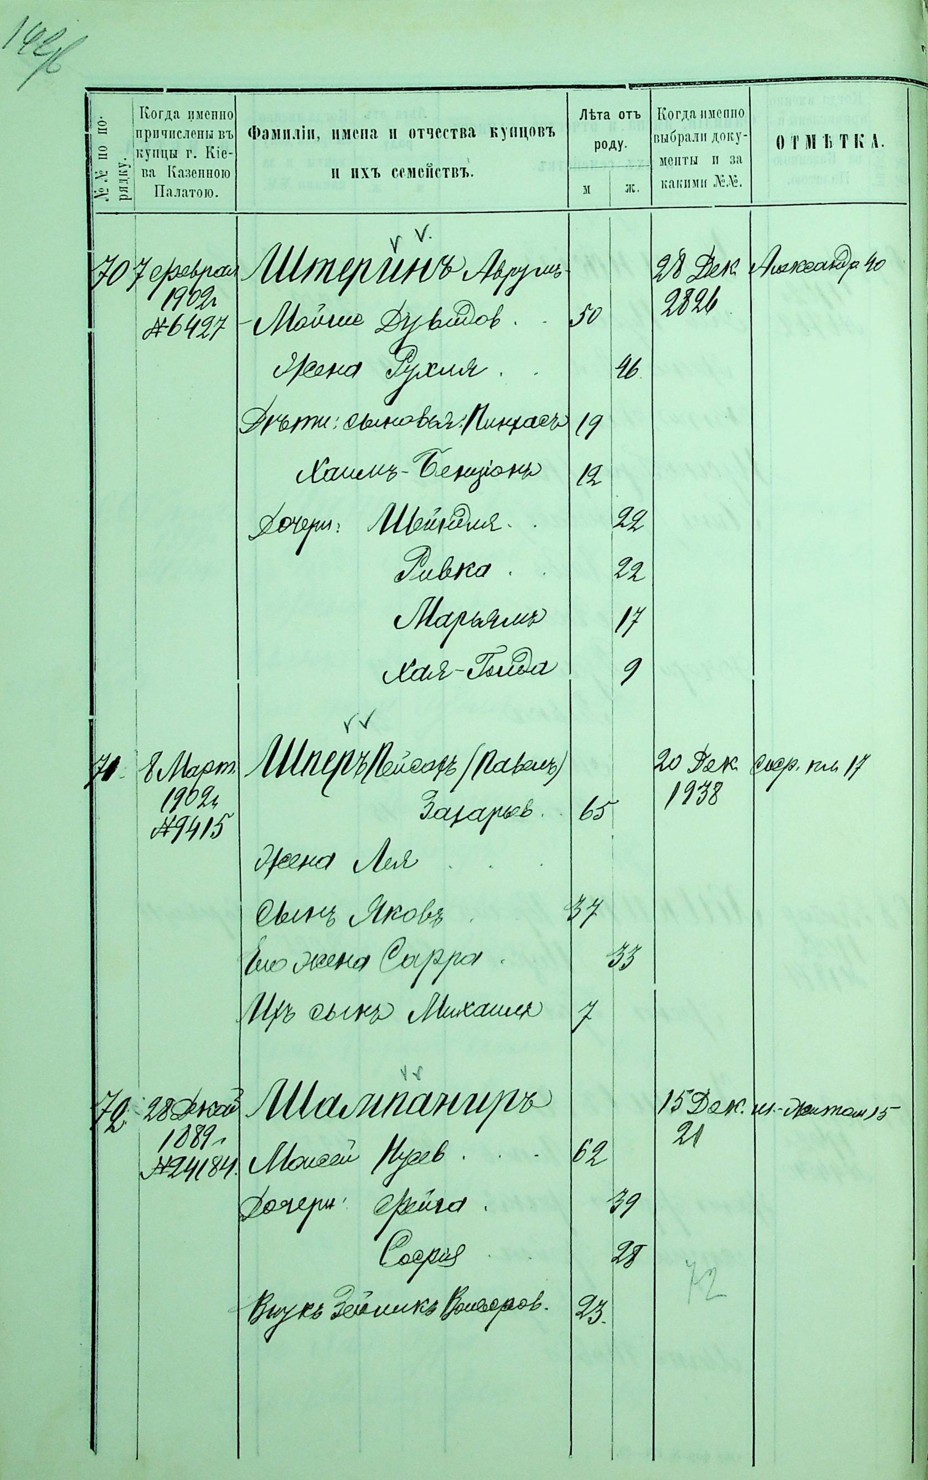 №№ по порядку.
Когда именно причислены въ купцы г. Кіева Казенною Палатою.
Фамиліи, имена и отчества купцовъ и ихъ семействъ.
Лѣта отъ роду.
м ж.
Когда именно выбрали документы и за какими №№.
ОТМѢТКА.
70 7 Феврал Штеринъ Аврумъ- 28 Дек. Александр 40
1902г 2826
№6427 Мойше Дувидов. 50
Жена Рухля 46
Дѣти: сыновья: Пинхасъ 19
Хаимъ-Бенціонъ 12
Дочери: Шейндля 22
Ривка 22
Марьямъ 17
Хая-Гольда 9
71 8 Март. Шперъ Пейсахъ (Павелъ) 20 Дек. 17
1902г Захарьев. 65 1938
№9415
Жена Лея
Сынъ Яковъ 37
Его жена Сарра 33
Ихъ сынъ Михаилъ 7
72 28 Декаб Шампаниръ 15 Дек. 15
1889г. 21
№24184. Моисей 62
Дочери: Фейга 39
София 28
72
Внукъ 23.